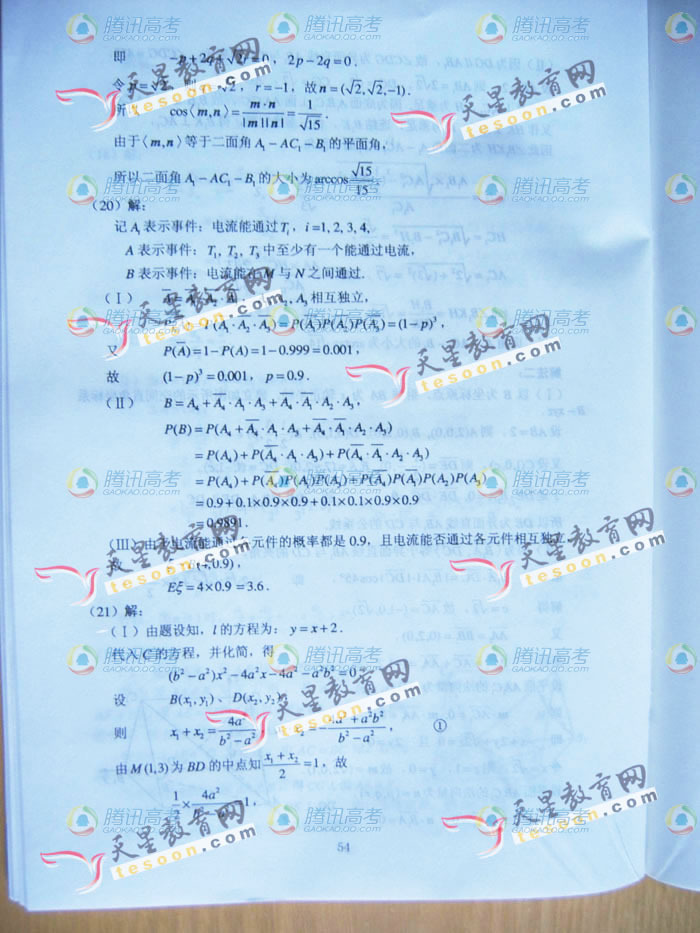 即 -p+2q+√2r=0, 2p-2q=0.
令p=√2, q=√2, r=-1, 故n=(√2,√2,-1).
所以 cos⟨m,n⟩=m·n/|m||n|=1/√15.
由于⟨m,n⟩等于二面角A₁-AC₁-B₁的平面角,
所以二面角A₁-AC₁-B₁的大小为arccos√15/15.
(20)解:
记Aᵢ表示事件:电流能通过Tᵢ, i=1,2,3,4,
A表示事件:T₁,T₂,T₃中至少有一个能通过电流,
B表示事件:电流能在M与N之间通过.
(Ⅰ) 相互独立,
P(A̅₁·A̅₂·A̅₃)=P(A̅₁)P(A̅₂)P(A̅₃)=(1-p)³,
又 P(A̅)=1-P(A)=1-0.999=0.001,
故 (1-p)³=0.001, p=0.9.
(Ⅱ) B=A₄+A̅₄·A₁·A₃+A̅₄·A̅₁·A₂·A₃,
P(B)=P(A₄+A̅₄·A₁·A₃+A̅₄·A̅₁·A₂·A₃)
=P(A₄)+P(A̅₄·A₁·A₃)+P(A̅₄·A̅₁·A₂·A₃)
=P(A₄)+P(A̅₄)P(A₁)P(A₃)+P(A̅₄)P(A̅₁)P(A₂)P(A₃)
=0.9+0.1×0.9×0.9+0.1×0.1×0.9×0.9
=0.9891.
(Ⅲ)由于电流能通过各元件的概率都是0.9,且电流能否通过各元件相互独立,
故 ξ~B(4,0.9),
Eξ=4×0.9=3.6.
(21)解:
(Ⅰ)由题设知,l的方程为:y=x+2.
代入C的方程,并化简,得
(b²-a²)x²-4a²x-4a²-a²b²=0,
设 B(x₁,y₁)、D(x₂,y₂),
则 x₁+x₂=4a²/(b²-a²), x₁·x₂=-(4a²+a²b²)/(b²-a²), ①
由M(1,3)为BD的中点知(x₁+x₂)/2=1,故
1/2×4a²/(b²-a²)=1,
54
腾讯高考
GAOKAO.QQ.COM
天星教育网
tesoon.com